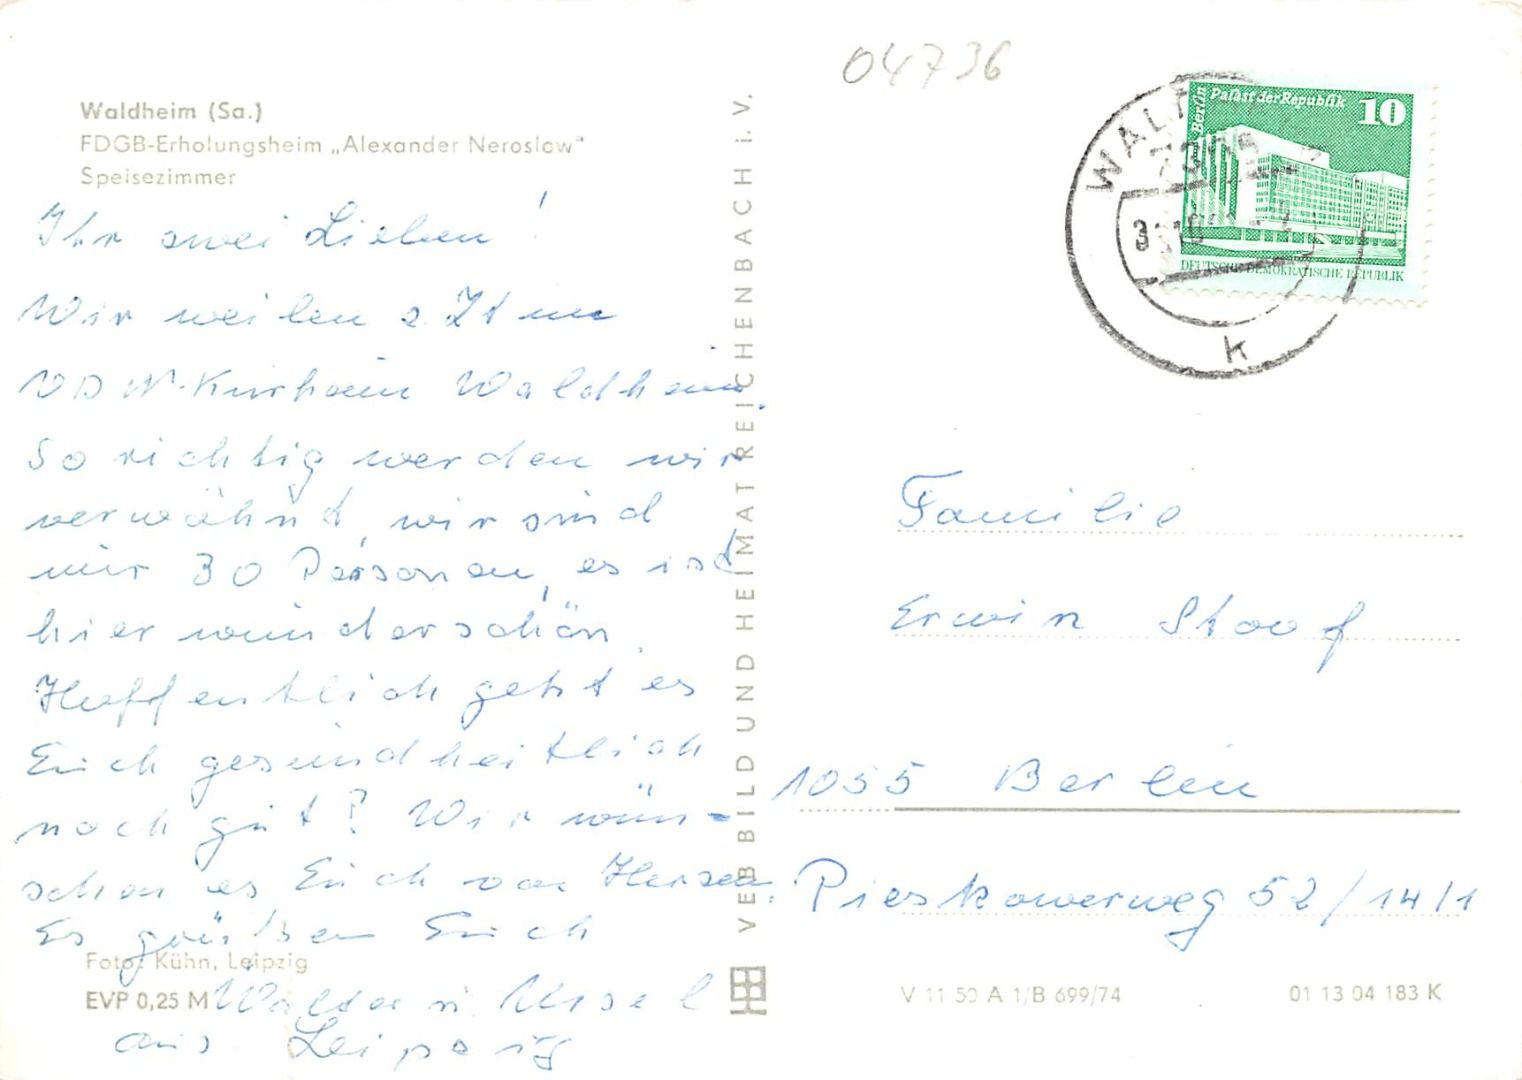 04736
Waldheim (Sa.)
FDGB-Erholungsheim „Alexander Neroslow"
Speisezimmer
Ihr zwei Lieben!
Wir weilen z. Zt im
VDN-Kurheim Waldheim.
So richtig werden wir
verwöhnt, wir sind
nur 30 Personen, es ist
hier wunderschön.
Hoffentlich geht es
Euch gesundheitlich
noch gut? Wir wün-
schen es Euch von Herzen.
Es grüßen Euch
Walter u. Ursel
aus Leipzig
Foto: Kühn, Leipzig
EVP 0,25 M
VEB BILD UND HEIMAT REICHENBACH i. V.
Berlin
Palast der Republik
10
DEUTSCHE DEMOKRATISCHE REPUBLIK
WALDH
k
Familie
Erwin Stoof
1055 Berlin
Pieskowerweg 52/14/1
V 11 50 A 1/B 699/74
01 13 04 183 K